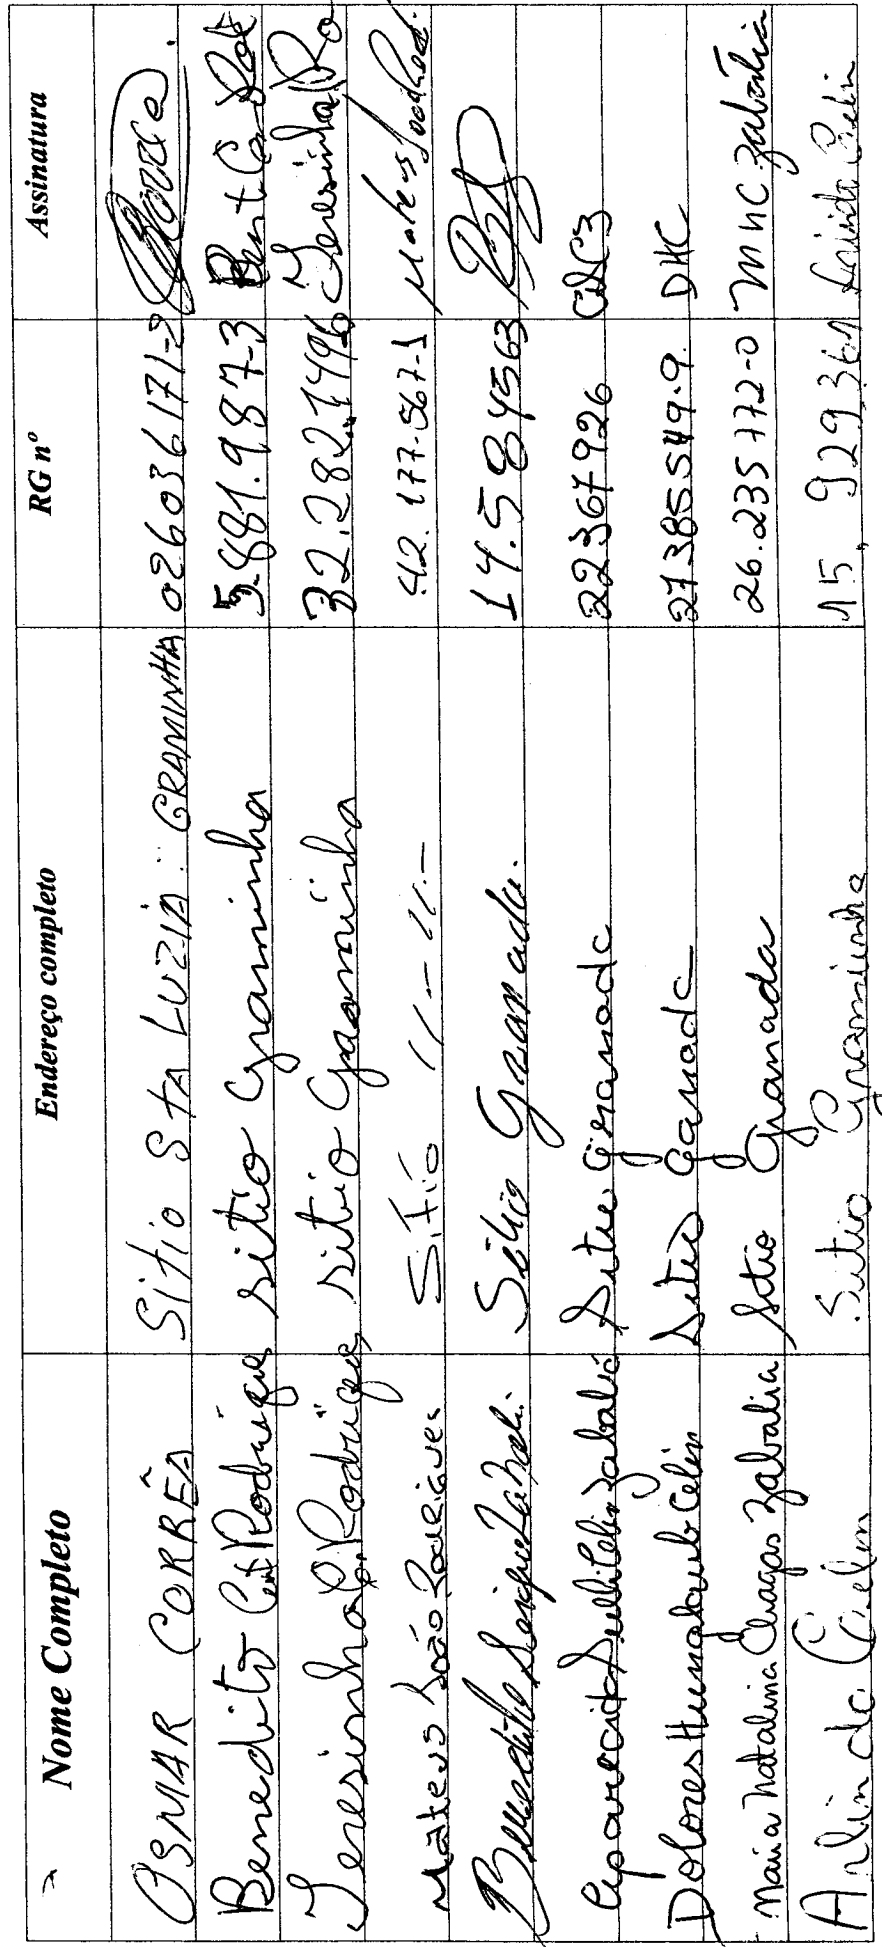 Nome Completo Endereço completo RG nº Assinatura
OSMAR CORRÊA Sítio STA LUZIA GRAMINHA 026036171-2
Benedito Rodrigues sitio Graminha 5.881.987-3
Teresinha Rodrigues sitio Graminha 32.282.749-6 Teresinha
Mateus João Rodrigues Sitio 11-11- 42.177.567-1
Benedito Sitio Granada. 14.5984563
Aparecida Zabalia Sitio Granada 22367926
Dolores Celin Sitio Ganada 27385549.9 DHC
Maria Natalina Chagas Zabalia Sitio Granada 26.235772-0 MNC Zabalia
Arlindo Celin Sitio Graminha 15.929361 Arlindo Celin